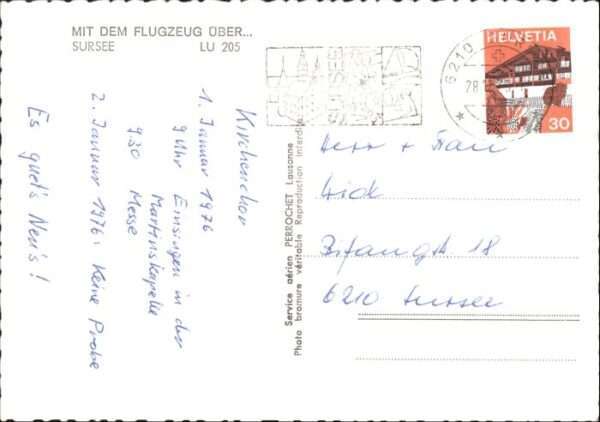 MIT DEM FLUGZEUG ÜBER...
SURSEE LU 205
HELVETIA
30
6210
28
Kirchenchor
1. Januar 1976
9 Uhr Einsingen in der
Martinskapelle
9.30 Messe
2. Januar 1976: Keine Probe
Es guet's Neu's!
Service aérien PERROCHET Lausanne
Photo bromure véritable Reproduction interdite
Herr + Frau
Bifangstr. 18
6210 Sursee